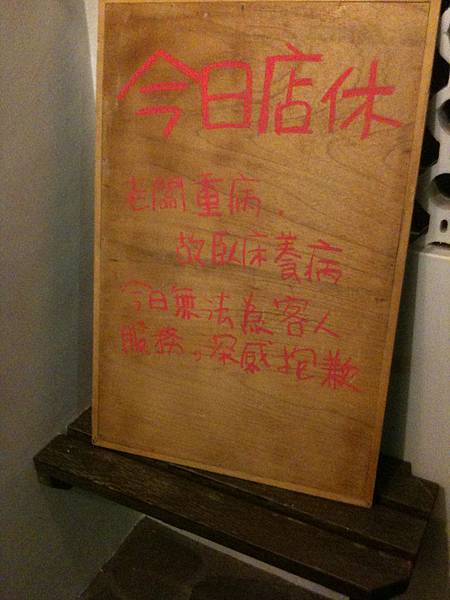 今日店休
老闆重病,
故臥床養病
今日無法為客人
服務，深感抱歉